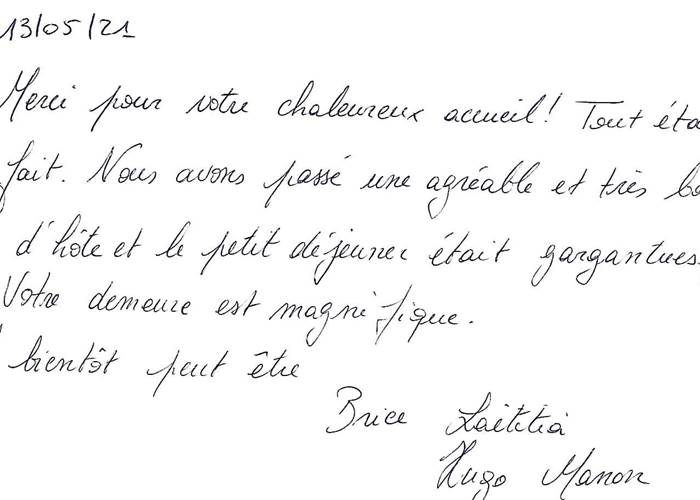 13/05/21
Merci pour votre chaleureux accueil! Tout éta
fait. Nous avons passé une agréable et très
d'hôte et le petit déjeuner était gargantues
Votre demeure est magnifique.
bientôt peut être
Brice Laëtitia
Hugo Manon